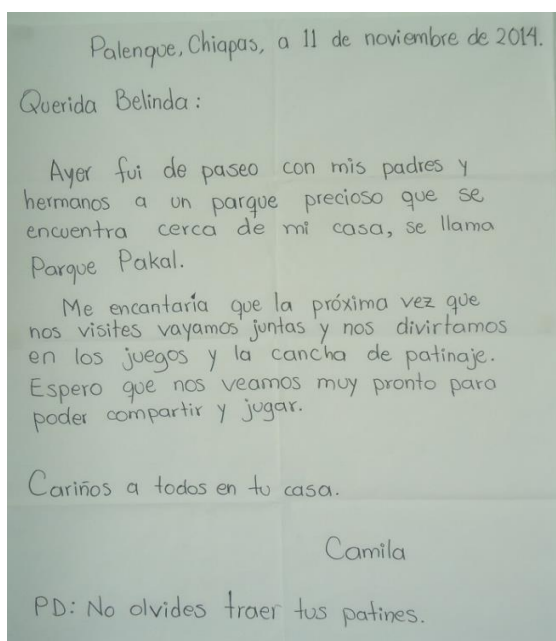 Palenque, Chiapas, a 11 de noviembre de 2014.
Querida Belinda:
Ayer fui de paseo con mis padres y
hermanos a un parque precioso que se
encuentra cerca de mi casa, se llama
Parque Pakal.
Me encantaría que la próxima vez que
nos visites vayamos juntas y nos divirtamos
en los juegos y la cancha de patinaje.
Espero que nos veamos muy pronto para
poder compartir y jugar.
Cariños a todos en tu casa.
Camila
PD: No olvides traer tus patines.